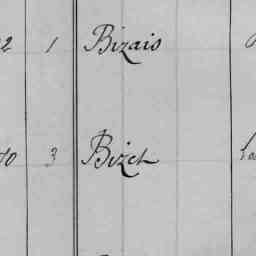 2 1 Bizais
10 3 Bizet